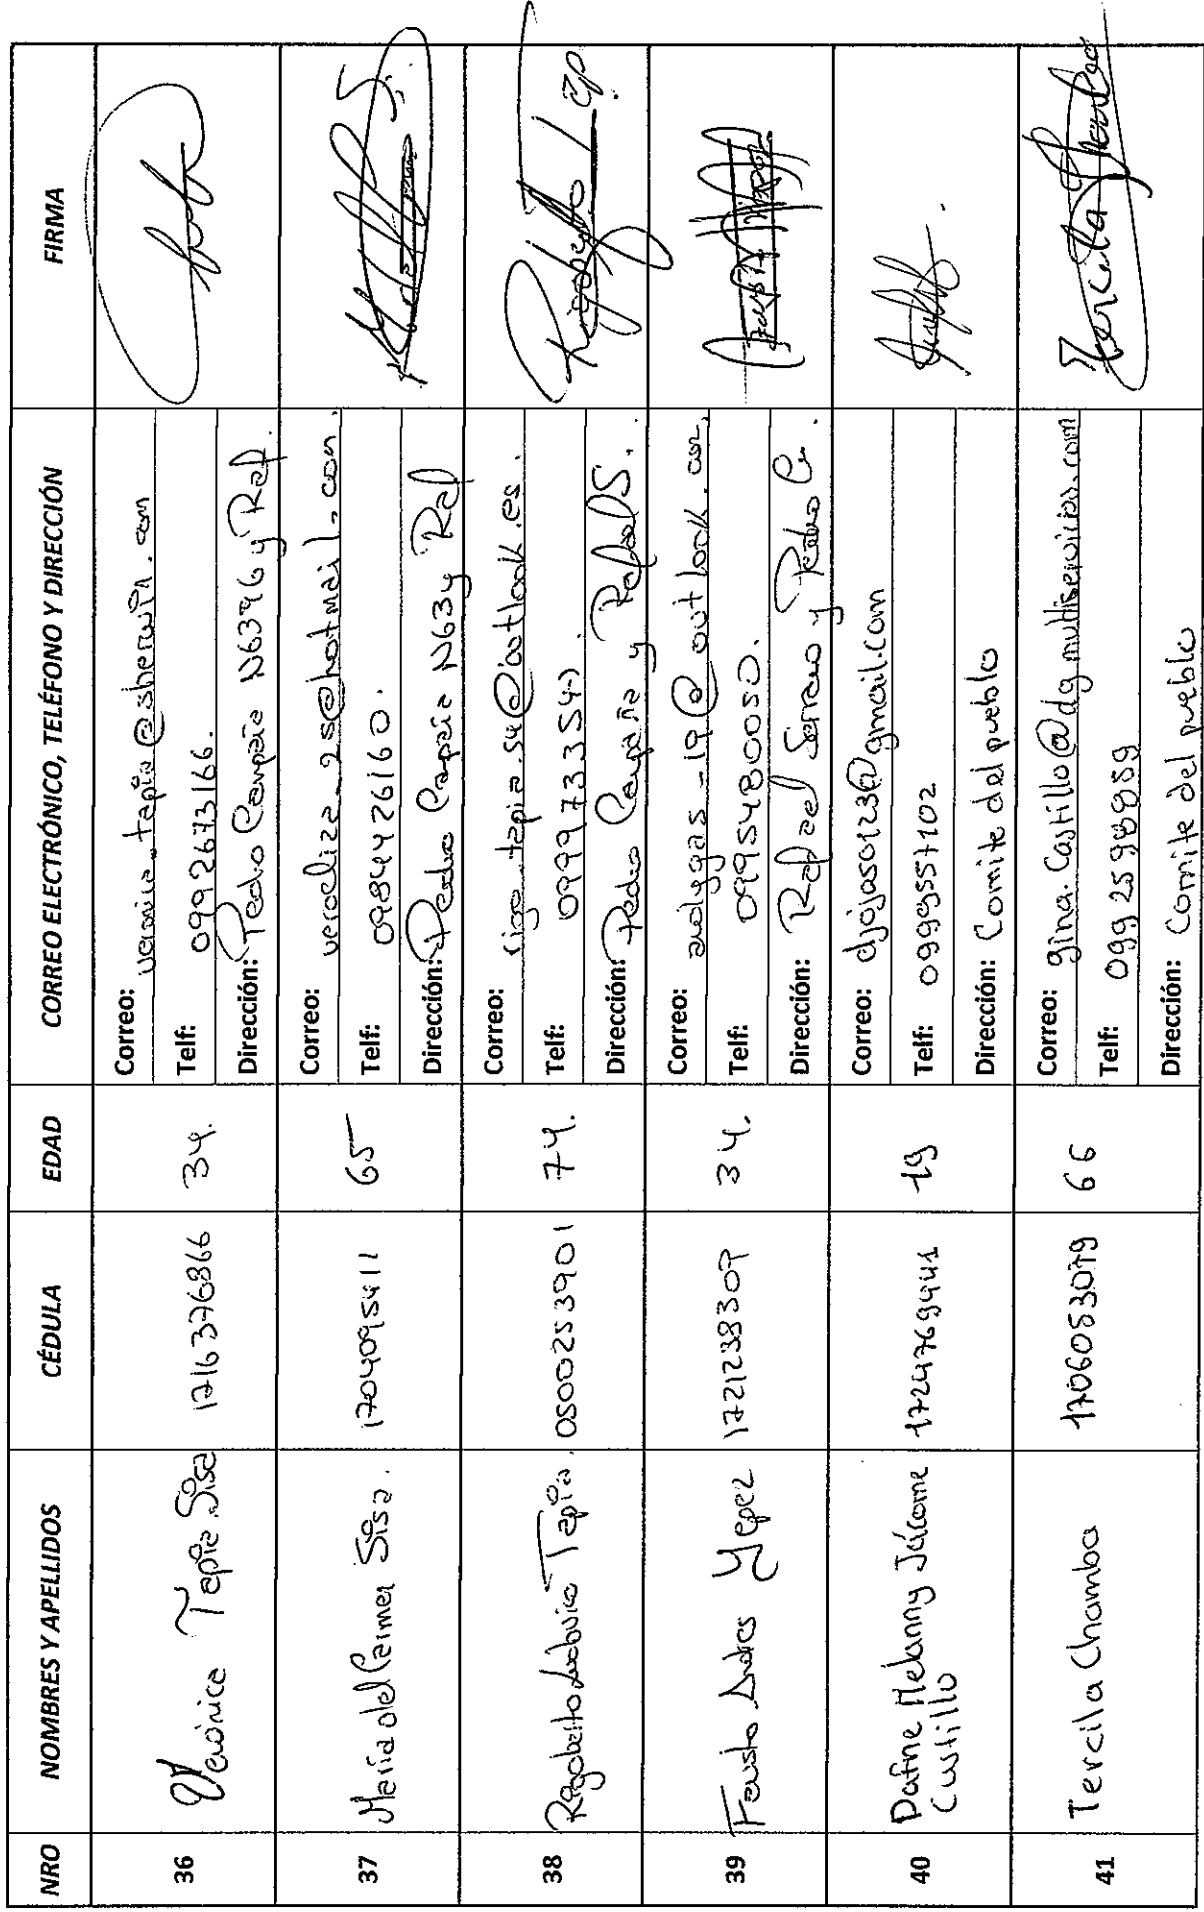 NRO NOMBRES Y APELLIDOS CÉDULA EDAD CORREO ELECTRÓNICO, TELÉFONO Y DIRECCIÓN FIRMA
36 Verónica Tapia Sisa 1716376866 34.
Correo: veronica_tapia@sherwin.com
Telf: 0992673166.
Dirección: Pedro Campaña N6396 y Raf.
37 María del Carmen Sisa. 1704095411 65
Correo: veroliza_2s@hotmail.com.
Telf: 0984426160.
Dirección: Pedro Campaña N634 y Raf
38 Rigoberto Ludovico Tapia. 0500253901 74.
Correo: rigo_tapia.54@outlook.es.
Telf:
Dirección: Pedro Campaña y Rafael S.
39 Fausto Andres Yepez 1721238307 34.
Correo: @outlook.com
Telf: 0995480050.
Dirección: Rafael Serrano y Pedro
40 Dafine Melanny Jácome
Castillo 1724769441 19
Correo: djojaso123@gmail.com
Telf: 0999557102
Dirección: Comite del pueblo
41 Tercila Chamba 1706053079 66
Correo: gina.Castillo@dgmultiservicios.com
Telf: 0992598959
Dirección: Comite del pueblo
Tercila